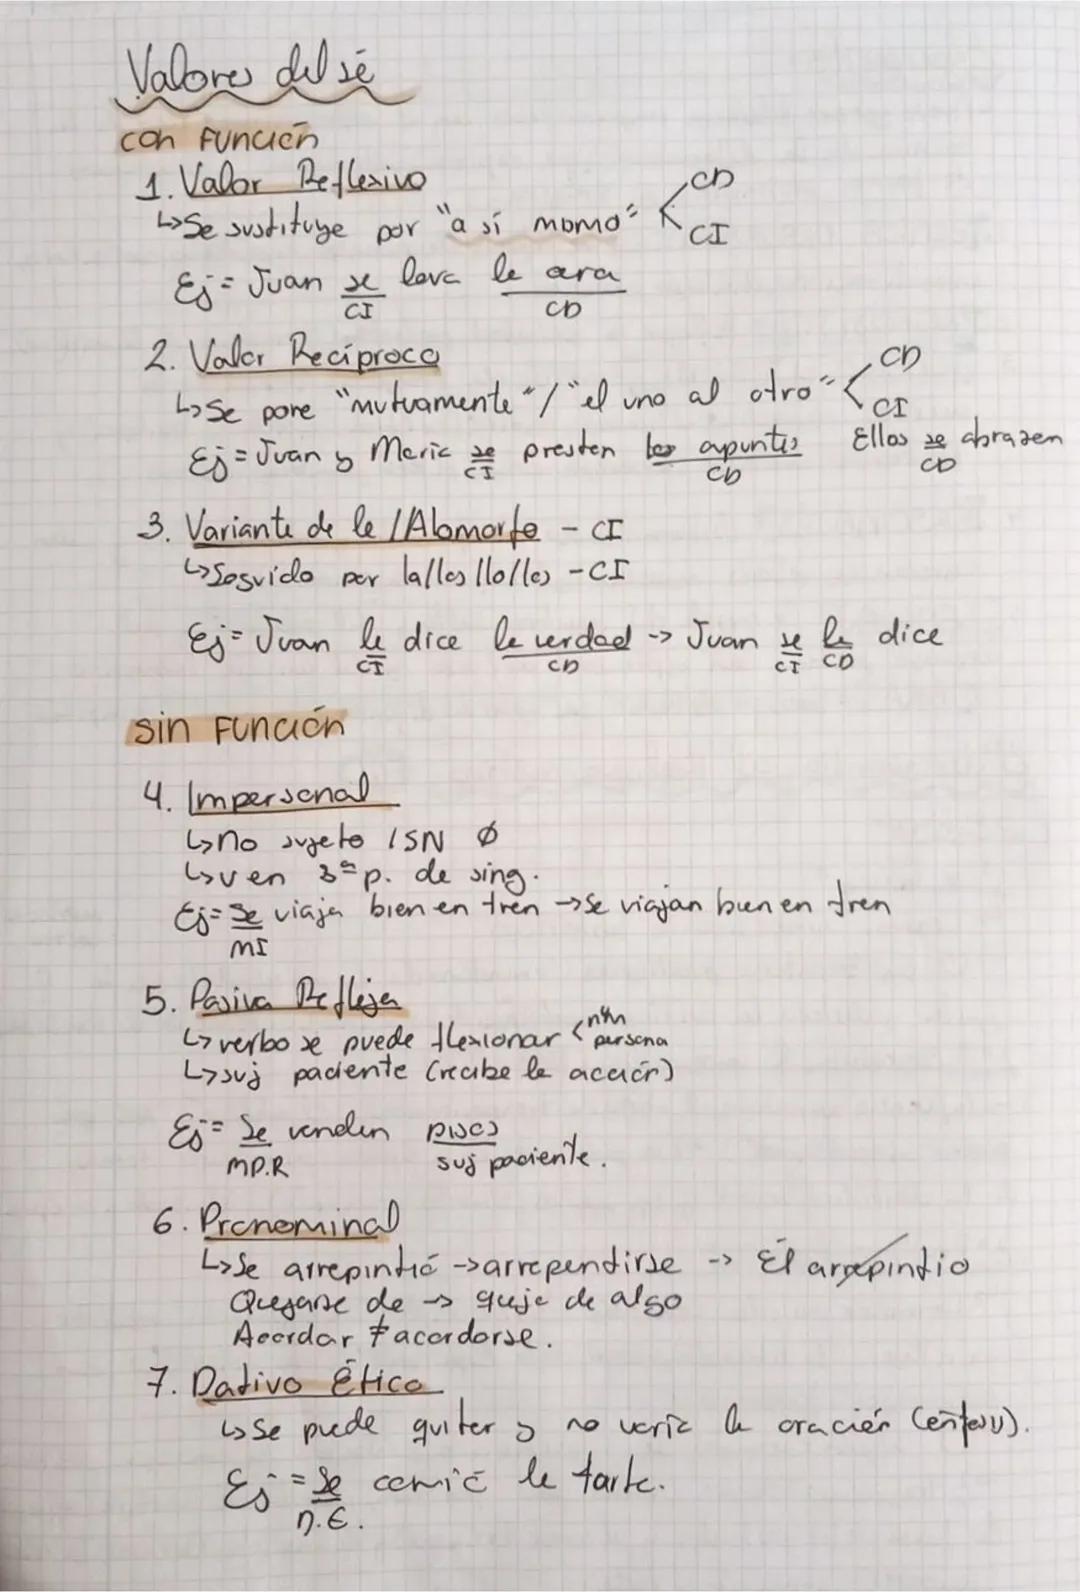 Valores del sé
con Función
1. Valor Reflexivo
↳ Se sustituye por "a sí mismo" < CD CI
Ej = Juan se lava la cara
CI CD
2. Valor Recíproco
↳ Se pone "mutuamente" / "el uno al otro" < CD CI
Ej = Juan y María se prestan los apuntes Ellos se abrazan
CI CD CD
3. Variante de le / Alomorfo - CI
↳ Seguido por la/las/lo/los - CI
Ej = Juan le dice la verdad -> Juan se la dice
CI CD CI CD
Sin Función
4. Impersonal
↳ No sujeto / SN Ø
↳ v en 3ª p. de sing.
Ej = Se viaja bien en tren -> Se viajan bien en tren
MI
5. Pasiva Refleja
↳ verbo se puede flexionar < núm persona
↳ suj paciente (recibe la acción)
Ej = Se venden pisos
MP.R suj paciente.
6. Pronominal
↳ Se arrepintió -> arrepentirse -> Él arrepintio
Quejarse de -> queja de algo
Acordar ≠ acordarse.
7. Dativo Ético
↳ Se puede quitar y no varía la oración (énfasis).
Ej = Se comió la tarta.
D.E.